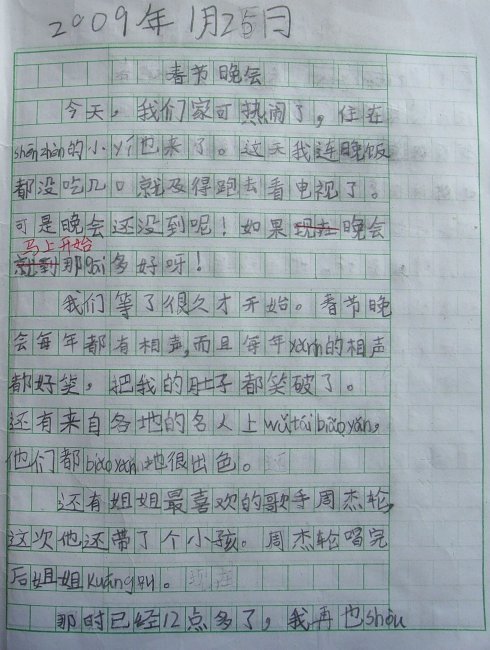 2009年1月25日
春节晚会
今天，我们家可热闹了，住在
shēnzhèn的小yí也来了。这天我连晚饭
都没吃几口就及得跑去看电视了。
可是晚会还没到呢！如果现在晚会
马上开始
就到那gāi多好呀！
我们等了很久才开始。春节晚
会每年都有相声，而且每年的相声
都好笑，把我的肚子都笑破了。
还有来自各地的名人上wǔtáibiǎoyǎn，
他们都biǎoyǎn地很出色。
还有姐姐最喜欢的歌手周杰轮，
这次他还带了个小孩。周杰轮唱完
后姐姐kuáng
那时已经12点多了，我再也shòu